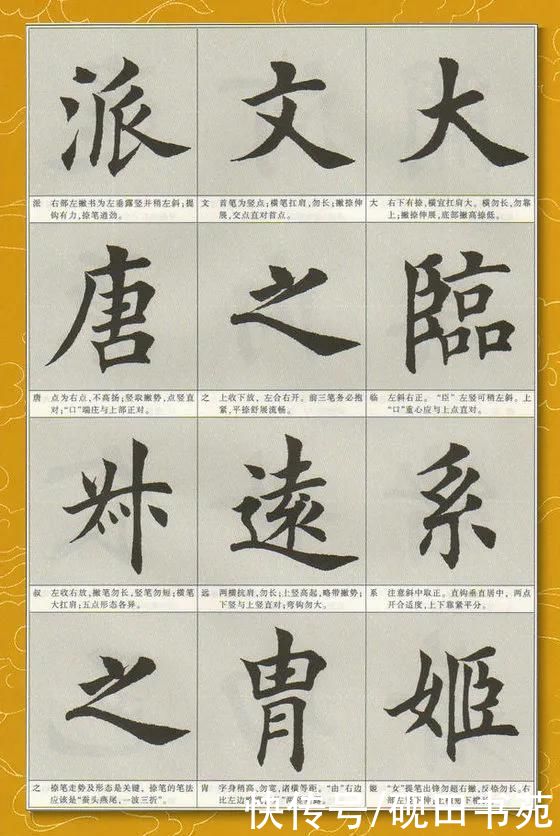 派 文 大
派 右部左撇书为左垂露竖并稍左斜；提
钩有力，捺笔遒劲。
文 首笔为竖点；横笔扛肩，勿长；撇捺伸
展，交点直对首点。
大 右下有捺，横宜扛肩大。横勿长，勿靠
上；撇捺伸展，底部撇高捺低。
唐 之 臨
唐 点为右点，不高扬；竖取撇势，点竖直
对；“口”端庄与上部正对。
之 上收下放，左合右开。前三笔务必抱
紧，平捺舒展流畅。
临 左斜右正。“臣”左竖可稍左斜。上
“口”重心应与上点直对。
叔 遠 系
叔 左收右放，撇笔勿长，竖笔勿短；横笔
大扛肩；五点形态各异。
远 两横抗肩，勿长；上竖高起，略带撇势；
下竖与上竖直对；弯钩勿大。
系 注意斜中取正。直钩垂直居中，两点
开合适度，上下靠紧平分。
之 胄 姬
之 捺笔走势及形态是关键，捺笔的笔法
应该是“蚕头燕尾，一波三折”。
胄 字身稍高、勿宽，诸横等距。“由”右边
比左边
姬 “女”提笔出锋勿超右撇，反捺勿长。右
部左竖下伸；
快传号/砚山书苑